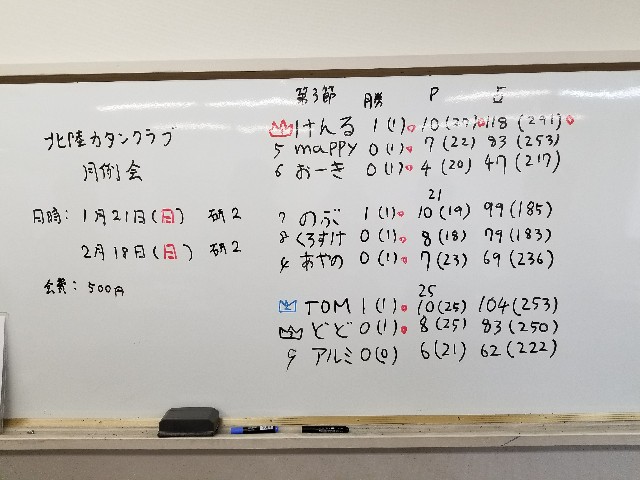 北陸カタンクラブ
月例会
日時：1月21日(日) 研2
2月18日(日) 研2
会費：500円
第3節 勝 P
けんる 1(1) 10 118(291)
5 mappy 0(1) 7(22) 83(253)
6 おーき 0(1) 4(20) 47(217)
21
7 のぶ 1(1) 10(19) 99(185)
8 くろすけ 0(1) 8(18) 79(183)
4 あやの 0(1) 7(23) 69(236)
25
2 TOM 1(1) 10(25) 104(253)
どど 0(1) 8(25) 83(250)
9 アルミ 0(0) 6(21) 62(222)